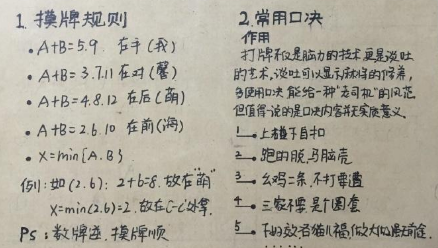 1. 摸牌规则
• A+B=5.9. 在手(我)
• A+B=3.7.11 在对(馨)
• A+B=4.8.12 在后(萌)
• A+B=2.6.10 在前(海)
• X=min{A.B}
例: 如(2.6): 2+6=8. 放在"萌"
X=min(2.6)=2. 放在
PS: 数牌逆. 摸牌顺
2. 常用口决
作用
打牌不仅是脑力的技术更是谈吐
的艺术,谈吐可以显示
多使用口决 能给一种"老司机"的风范
但值得一说的是口决内容并无实质意义.
1 上楼了自扣
2 跑的脱,马脑壳
3 幺鸡二条,不打要遭
4 三家不要是个圈套
5
......